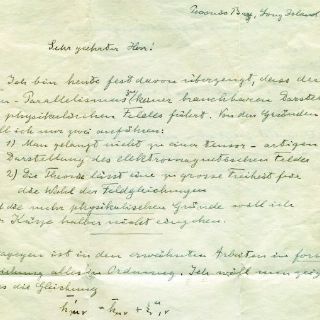 Peconic Bay, Long Island
Sehr geehrter Herr!
Ich bin heute fest davon überzeugt, dass der
Parallelismus zu keiner brauchbaren Darstel
physikalischen Feldes führt. Von den Gründen
ill ich nur zwei anführen:
1) Man gelangt nicht zu einer tensor-artigen
Darstellung des elektromagnetischen Feldes
2) Die Theorie lässt eine zu grosse Freiheit für
die Wahl der Feldgleichungen
d die mehr physikalischen Gründe will ich
r Kürze halber nicht eingehen.
agegen ist in den erwähnten Arbeiten in form
alles in Ordnung. Ich will nun zeig
s die Gleichung